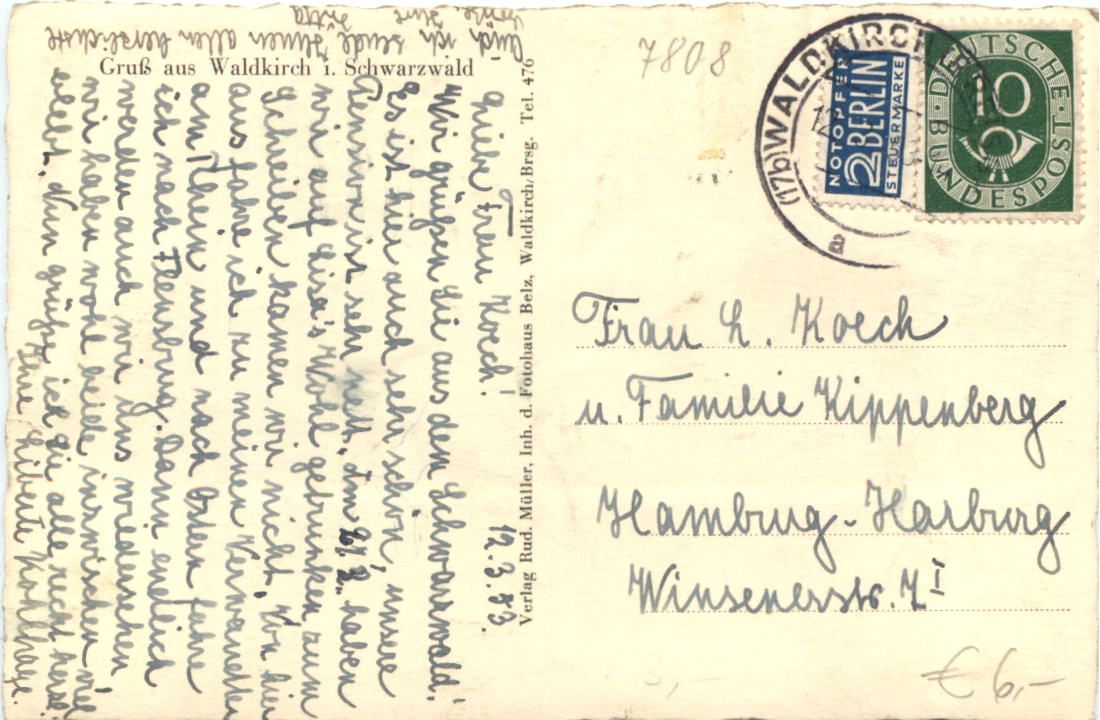 Gruß aus Waldkirch i. Schwarzwald
12.3.53.
Liebe Frau Koech!
Wir grüßen Sie aus dem Schwarzwald.
Es ist hier auch sehr schön, unsere
Pension ist sehr nett. Am 21/2. haben
wir auf Lisa's Wohl getrunken zum
Schreiben kamen wir nicht. Von hier
aus fahre ich zu meinen Verwandten
am Rhein und nach Ostern fahre
ich nach Flensburg. Dann endlich
werden auch wir uns wiedersehen,
wir haben wohl beide inzwischen viel
erlebt. Nun grüße ich Sie alle recht herzl.
Ihre Liberti Kohlhase.
Auch ich sende Ihnen allen herzlichste
Grüße. Ihre
Jutta
Verlag Rud. Müller, Inh. d. Fotohaus Belz, Waldkirch/Brsg. Tel. 476
7808
(17b) WALDKIRCH
12
a
NOTOPFER
2 BERLIN
STEUERMARKE
DEUTSCHE
BUNDESPOST
10
Frau L. Koech
u. Familie Kippenberg
Hamburg-Harburg
Winsenerstr. 7 I
3,-
€ 6,-